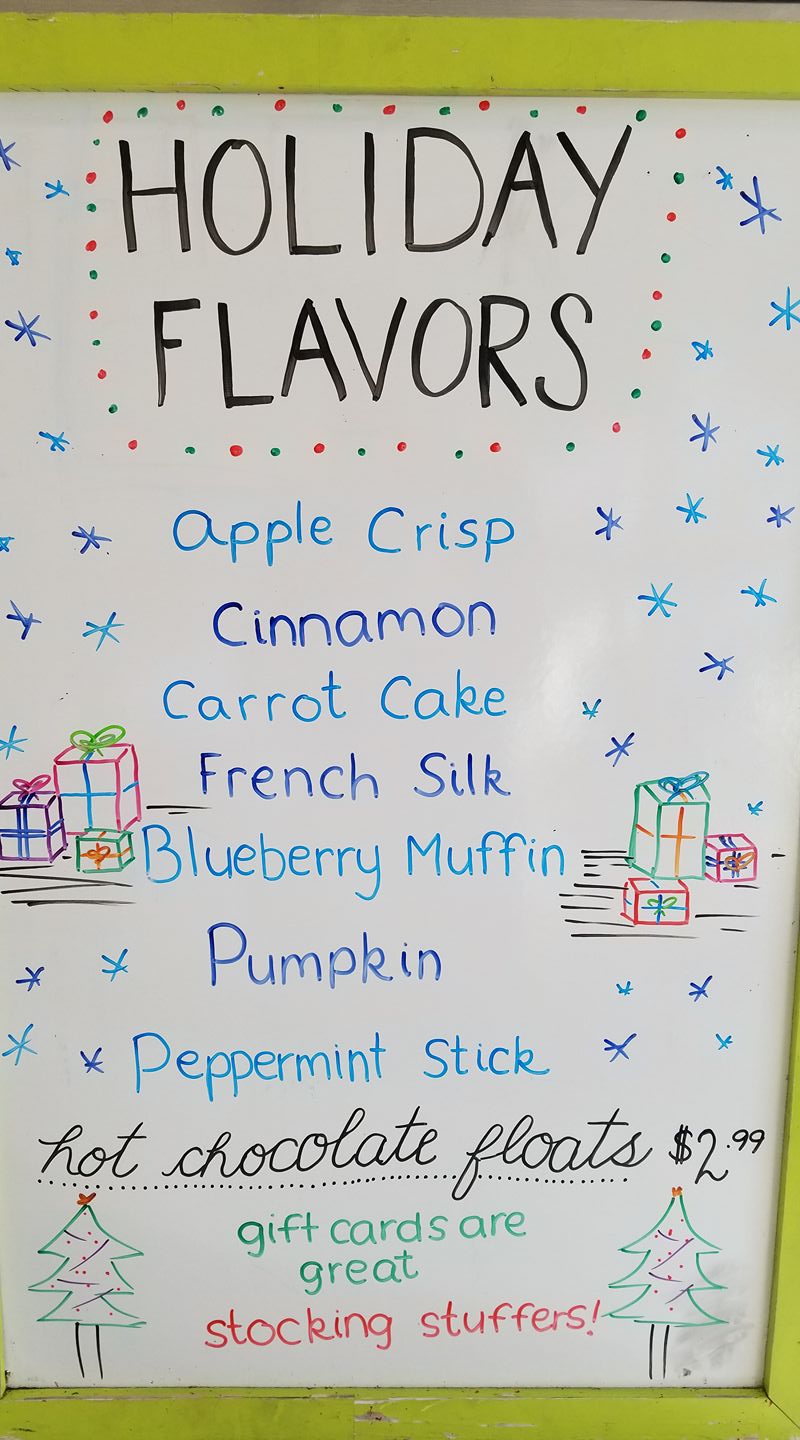 HOLIDAY
FLAVORS
Apple Crisp
Cinnamon
Carrot Cake
French Silk
Blueberry Muffin
Pumpkin
Peppermint Stick
hot chocolate floats $2.99
gift cards are
great
stocking stuffers!